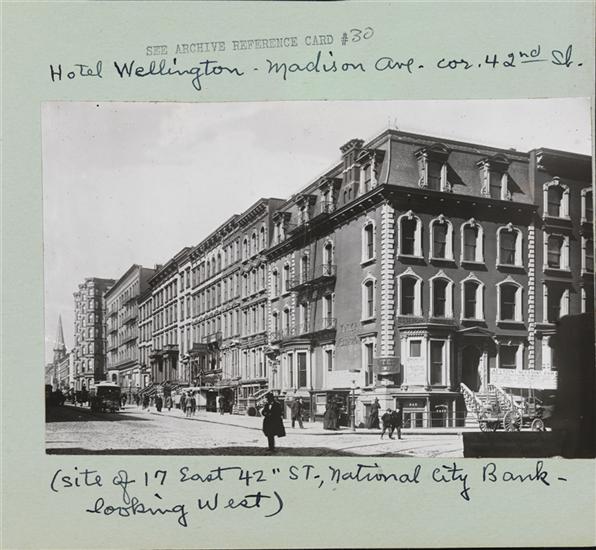 SEE ARCHIVE REFERENCE CARD #30
Hotel Wellington - Madison Ave. cor. 42nd St.
(site of 17 East 42" ST., National City Bank -
looking West)